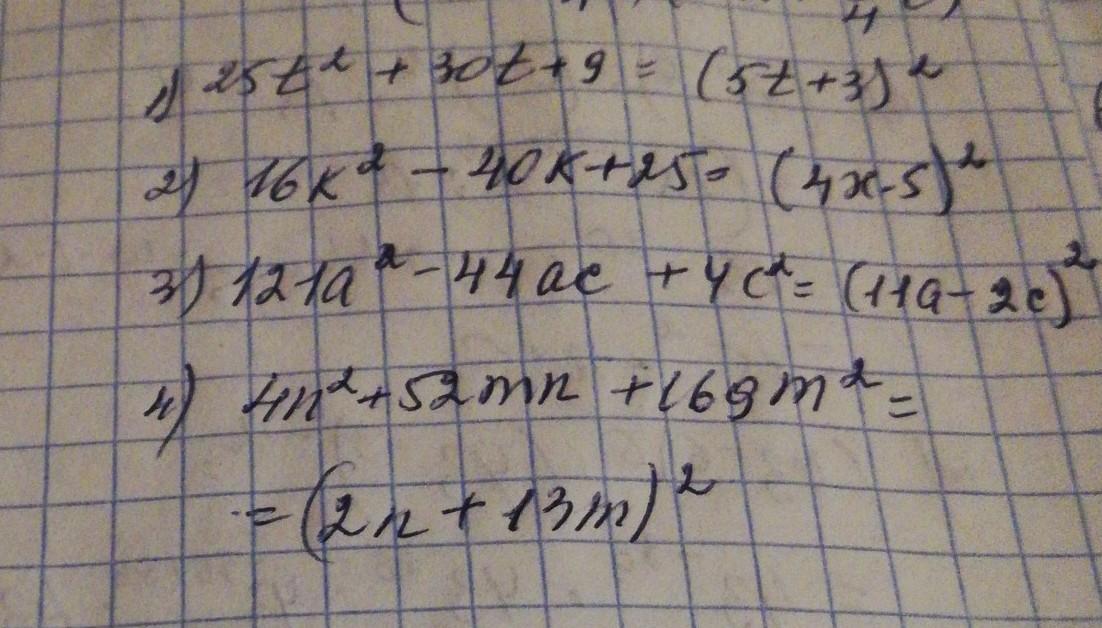 1) 25t² + 30t + 9 = (5t + 3)²
2) 16k² - 40k + 25 = (4x - 5)²
3) 121a² - 44ac + 4c² = (11a - 2c)²
4) 4n² + 52mn + 169m² =
= (2n + 13m)²